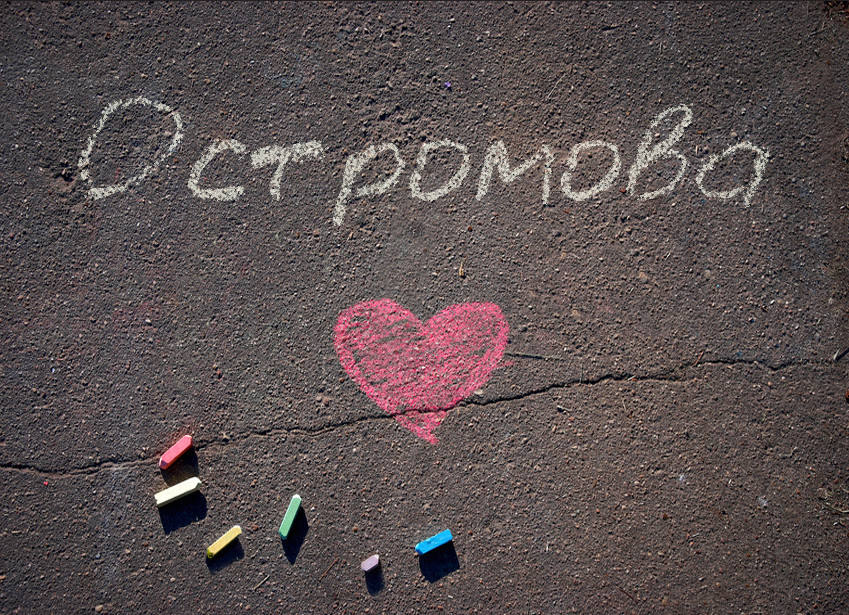 Остромова